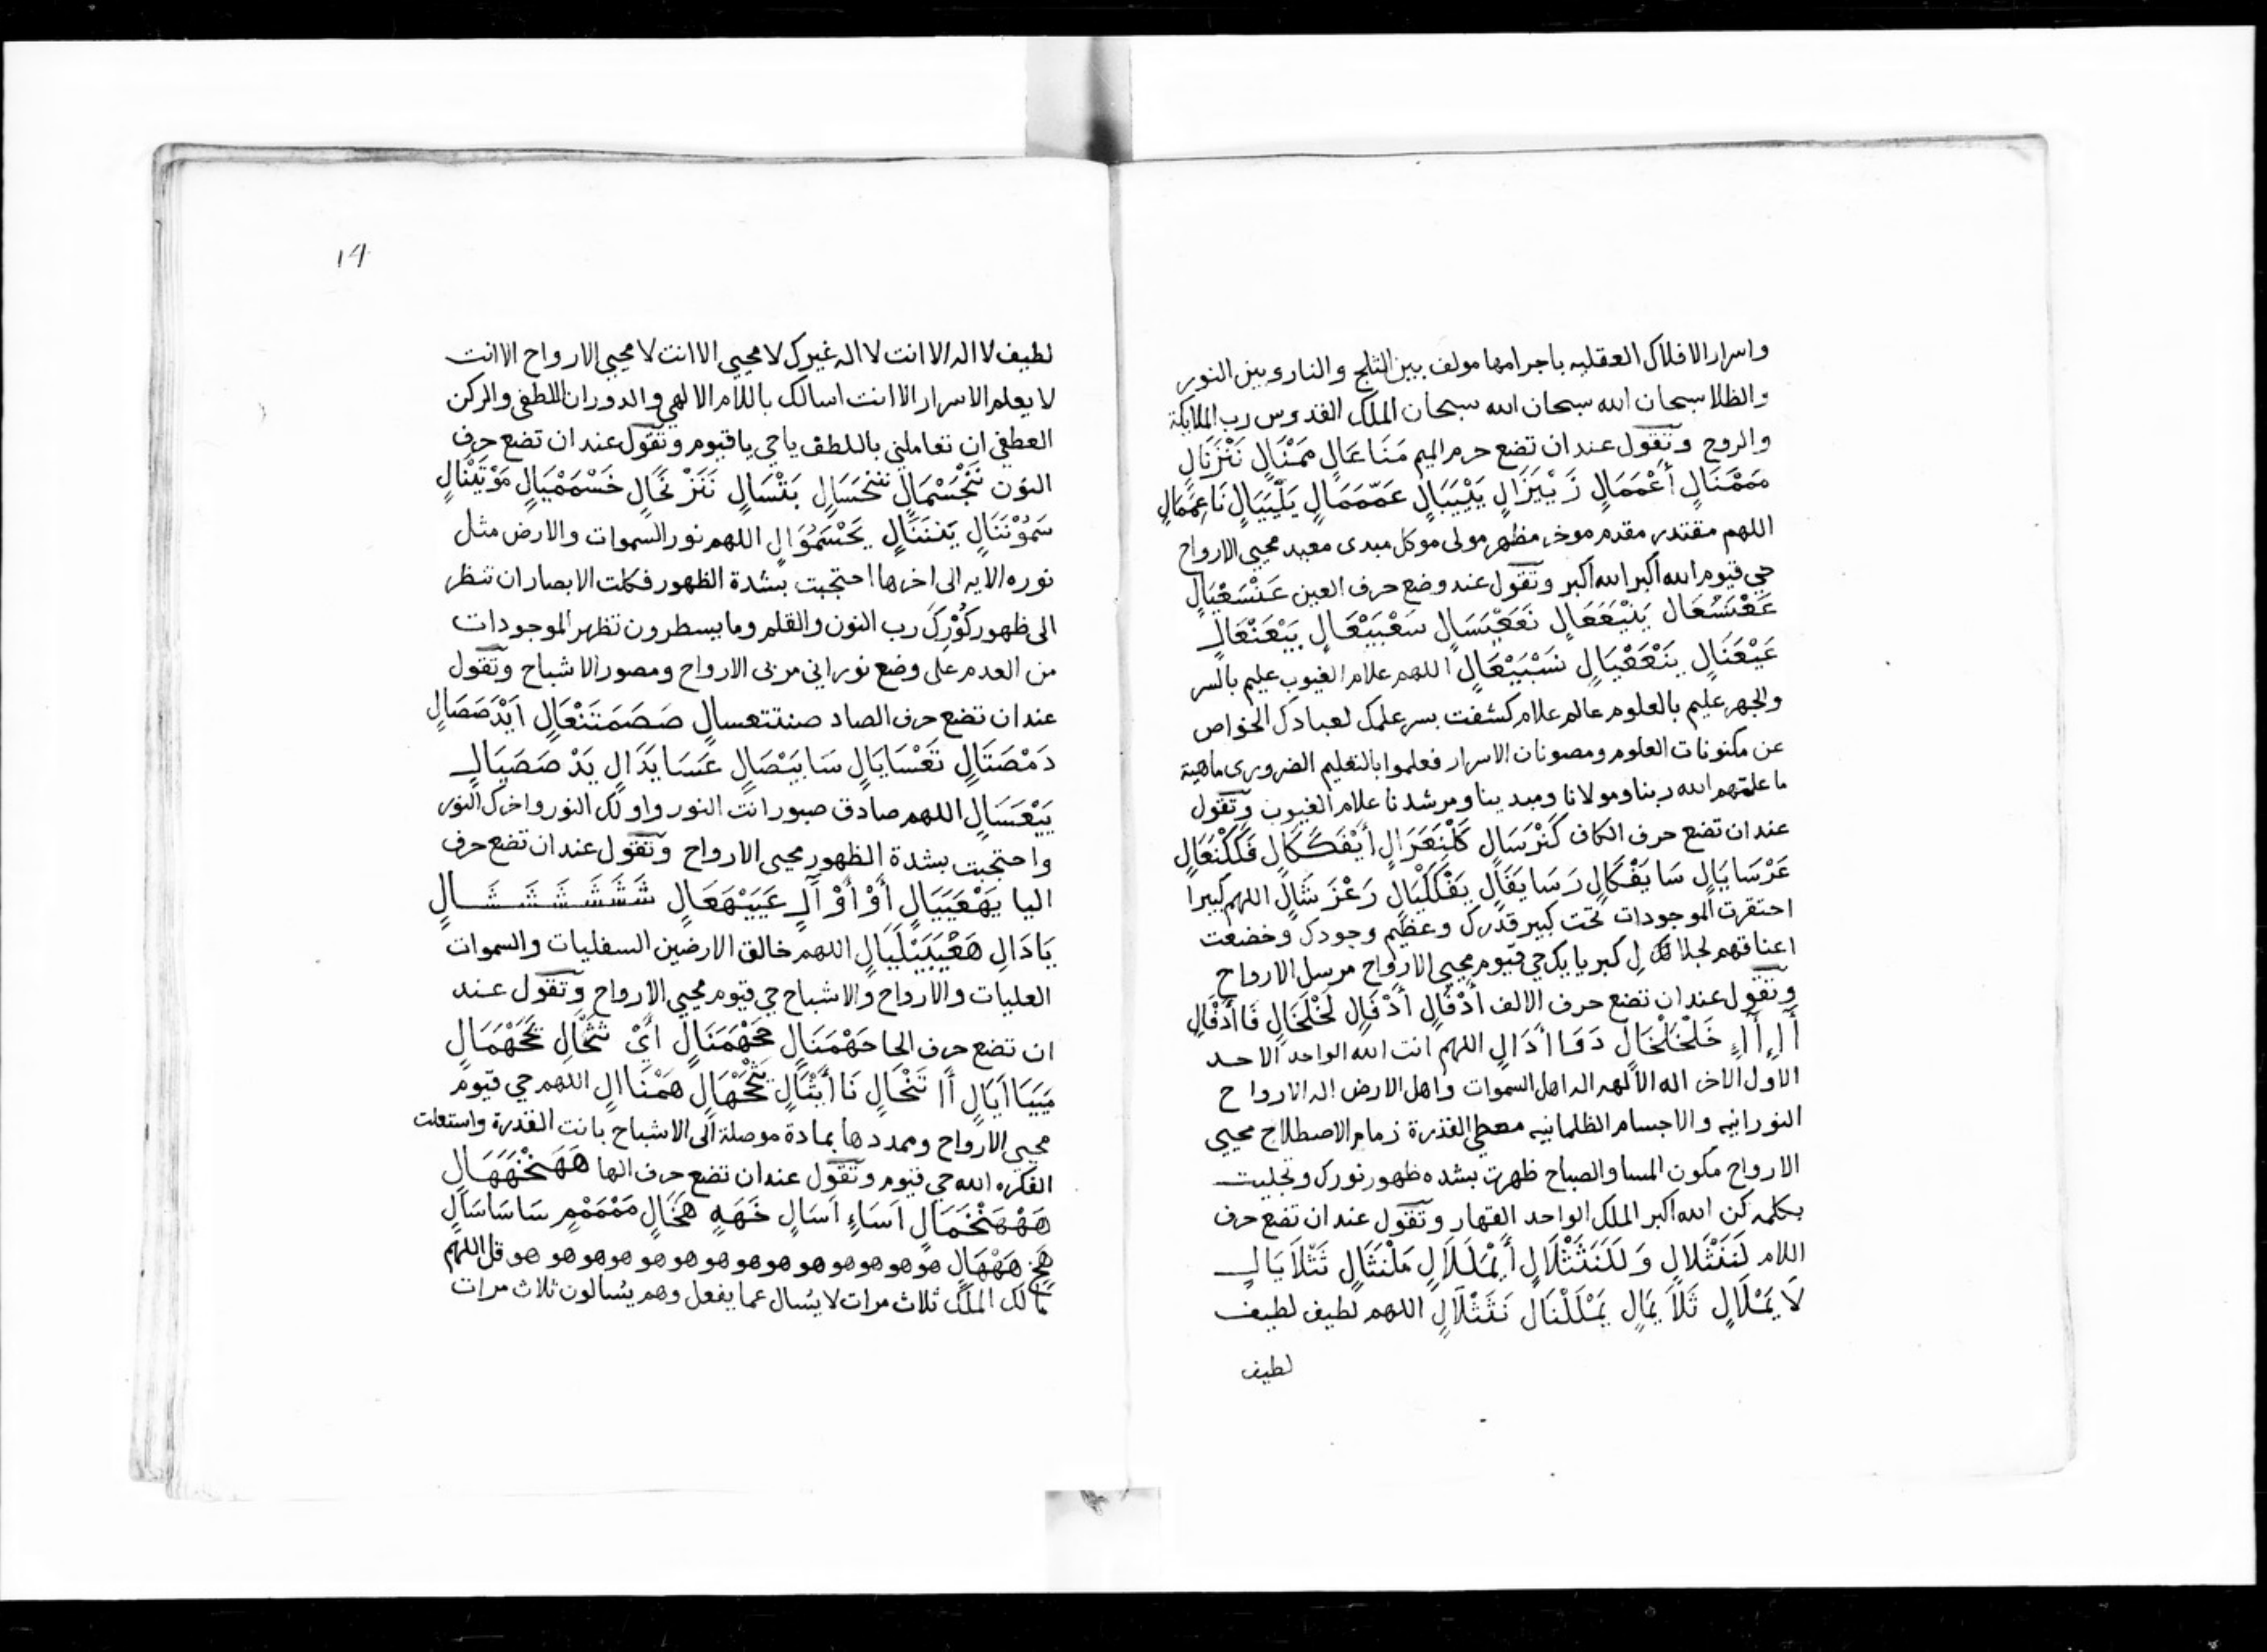 واسرار الافلاك العقليه باجرامها مولف بين الثلج والنار وبين النور
والظلا سبحان الله سبحان الله سبحان الملك القدوس رب الملايكة
والروح وتقول عند ان تضع حرم الميم مَنَاعَالٍ مَمْنَالٍ نَنْزَنَالٍ
مَمْمَنَالٍ أَعْمَمَالٍ زَيْيَزَالٍ يَيْيَبَالٍ عَمّمَمَالٍ يَلْيَيَالٍ نَاعِمَمَالٍ
اللهم مقتدر مقدم موخر مظهر مولى موكل مبدى معيد محيى الارواح
حي قيوم الله أكبر الله أكبر وتقول عند وضع حرف العين عَنْسَعْيَالٍ
عَيْعَنَالٍ اللهم علام الغيوب عليم بالسر
والجهر عليم بالعلوم عالم علام كشفت بسر علمك لعبادك الخواص
عن مكنونات العلوم ومصونات الاسرار فعلموا بالتعليم الضرورى ماهية
ما علمتهم الله ربنا ومولانا ومبدينا ومرشدنا علام الغيوب وتقول
عند ان تضع حرف الكاف كَنْرَسَالٍ كَلْنَعَزَالٍ أَيْفَكَكَالٍ فَكَكْنَعَالٍ
عَرْسَايَالٍ سَايَفْكَالٍ رَسَايَقَالٍ يَفْكَكْيَالٍ رَعْزَشَالٍ اللهم كبيرا
احتقرت الموجودات تحت كبير قدرك وعظيم وجودك وخضعت
اعناقهم لجلالك لكبريايك حي قيوم محيى الارواح مرسل الارواح
وتقول عند ان تضع حرف الالف أَدْفَالٍ أَدْفَالٍ لَخْلَخَالٍ فَاأَدْفَالٍ
خَلْخَلْخَالٍ دَفَاأَدَالٍ اللهم انت الله الواحد الاحد
الاول الاخر اله الآلهه اله اهل السموات واهل الارض اله الارواح
النورانيه والاجسام الظلمانيه معطي القدرة زمام الاصطلاح محيى
الارواح مكون المسا والصباح ظهرت بشده ظهور نورك وتجليت
بكلمه كن الله اكبر الملك الواحد القهار وتقول عند ان تضع حرف
اللام لَنَنْثَلَالٍ وَلَكَنَثَنْثَلَالٍ أَيْمَلَلَالٍ مَلْنَثَالٍ نَثّلَايَالٍ
لَايَمْلَالٍ ثَلَايَمَالٍ يَمْلَلْنَالٍ نَثَثْلَالٍ اللهم لطيف لطيف
لطيف
١٩
لطيف لا اله الا انت لا اله غيرك لا محيى الا انت لا محيى الارواح الا انت
لا يعلم الاسرار الا انت اسالك باللام الالهي والدوران اللطفي والركن
العطفي ان تعاملني باللطف يا حي يا قيوم وتقول عند ان تضع حرف
النون بَنْسَالٍ نَنَزْنَحَالٍ خَسْمَمْيَالٍ مَوْيَنْنَالٍ
سَمُوْنَنَالٍ يَنْنَنَالٍ يَحْسَمُوَالٍ اللهم نور السموات والارض مثل
نوره الايه الى اخرها احتجبت بشدة الظهور فكلت الابصار ان تنظر
الى ظهور نورك رب النون والقلم وما يسطرون تظهر الموجودات
من العدم على وضع نوراني مربى الارواح ومصور الاشباح وتقول
عند ان تضع حرف الصاد صنتتعسالٍ صَصَمَتَنْعَالٍ اَيْدَصَصَالٍ
دَمْصَتَالٍ تَعْسَايَالٍ سَايَبْصَالٍ عَسَايَدَالٍ يَدْصَصَيَالٍ
يَيْعَسَالٍ اللهم صادق صبور انت النور واولك النور واخرك النور
واحتجبت بشدة الظهور محيى الارواح وتقول عند ان تضع حرف
اليا يَهْعَيَيَالٍ أَوْأَوْآلٍ عَيَيْهَعَالٍ شَشَشَشَشَشَالٍ
يَادَالٍ هَعْيَيَيْلَيَالٍ اللهم خالق الارضين السفليات والسموات
العليات والارواح والاشباح حي قيوم محيى الارواح وتقول عند
ان تضع حرف الحا حَهْمَنَالٍ مَحْهَمَنَالٍ أَيْ
اللهم حي قيوم
محيى الارواح وممددها بمادة موصلة الى الاشباح بانت القدرة واستعلت
الفكره الله حي قيوم وتقول عند ان تضع حرف الها هَهَنْخْهَهَالٍ
هَهْهَنْخَمَالٍ اَسَاءٍ اَسَالٍ خَهَهٍ هَخَالٍ مَمْمَمْمٍ سَاسَاسَالٍ
هَهْهَالٍ هو هو هو هو هو هو هو هو هو هو هو هو هو هو قل اللهم
مالك الملك ثلاث مرات لا يسال عما يفعل وهم يسالون ثلاث مرات